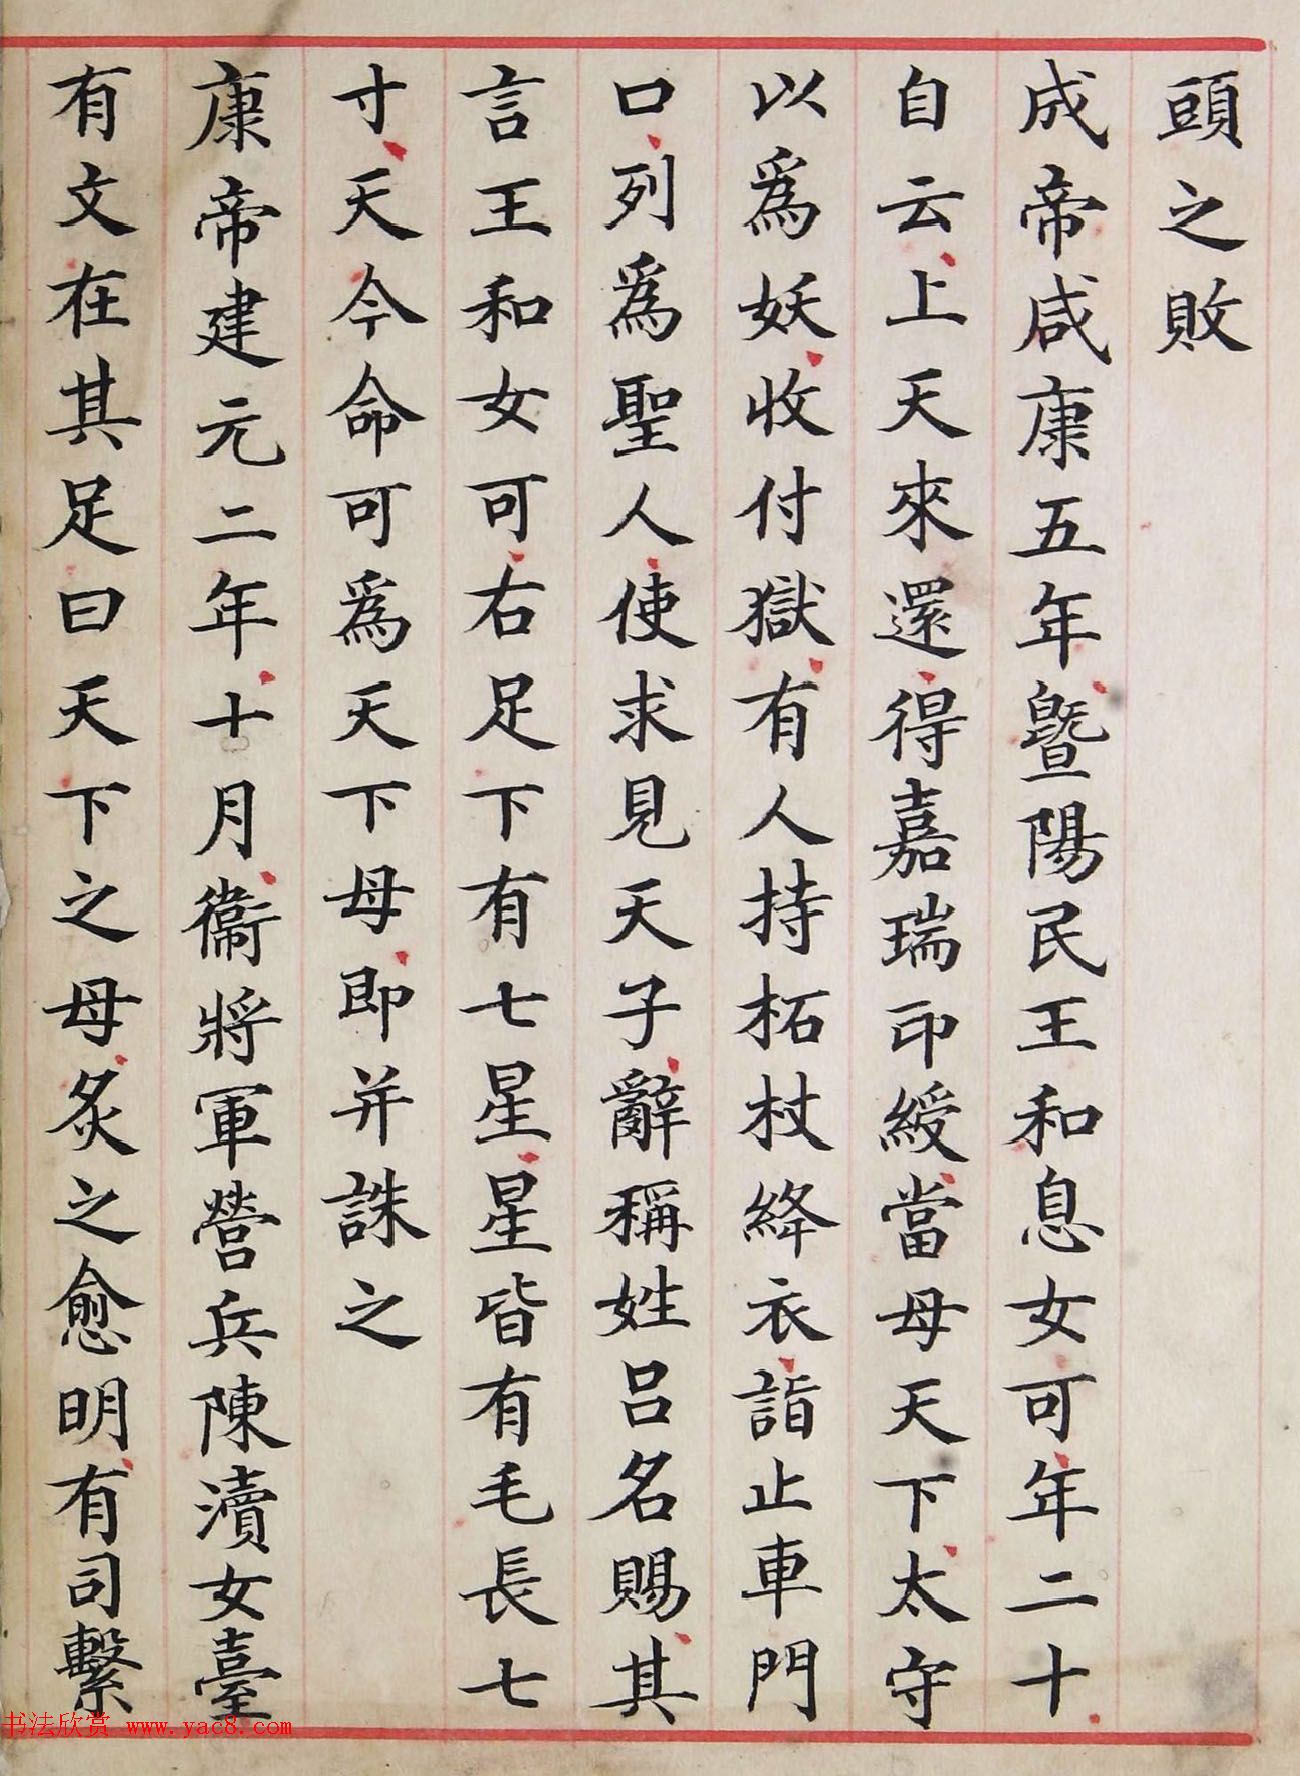 頭之敗
成帝咸康五年暨陽民王和息女可年二十
自云上天來還得嘉瑞印綬當母天下太守
以為妖收付獄有人持柘杖絳衣詣止車門
口列為聖人使求見天子辭稱姓呂名賜其
言王和女可右足下有七星星皆有毛長七
寸天今命可為天下母即并誅之
康帝建元二年十月衞將軍營兵陳瀆女臺
有文在其足曰天下之母炙之愈明有司繫
书法欣赏 www.yac8.com